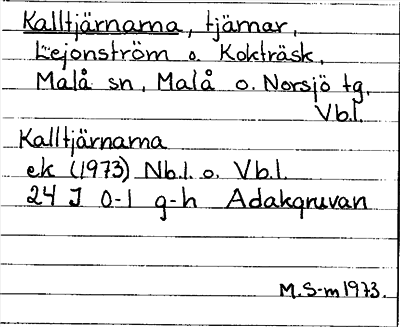 Kalltjärnarna, tjärnar,
Lejonström o. Kokträsk,
Malå sn, Malå o. Norsjö tg,
Vb.l.
Kalltjärnarna
ek (1973) Nb.l. o. Vb.l.
24 J 0-1 g-h Adakgruvan
M.S-m 1973.